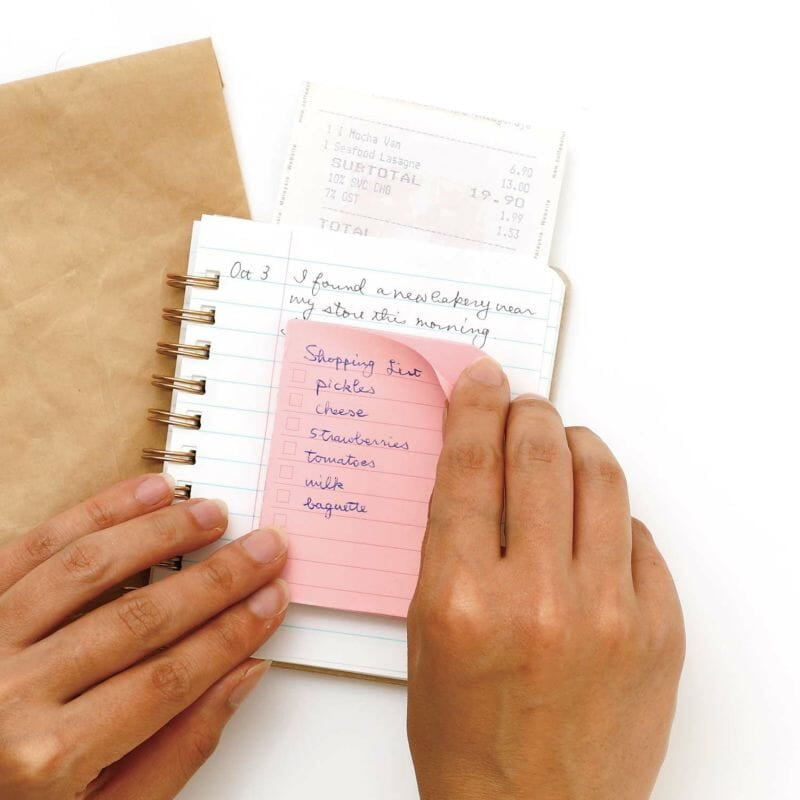 1 I Mocha Van 6.90
1 Seafood Lasagne 13.00
SUBTOTAL 19.90
10% SVC CHG 1.99
7% GST 1.53
TOTAL
Oct 3 I found a new bakery near
my store this morning.
Shopping List
pickles
cheese
strawberries
tomatoes
milk
baguette